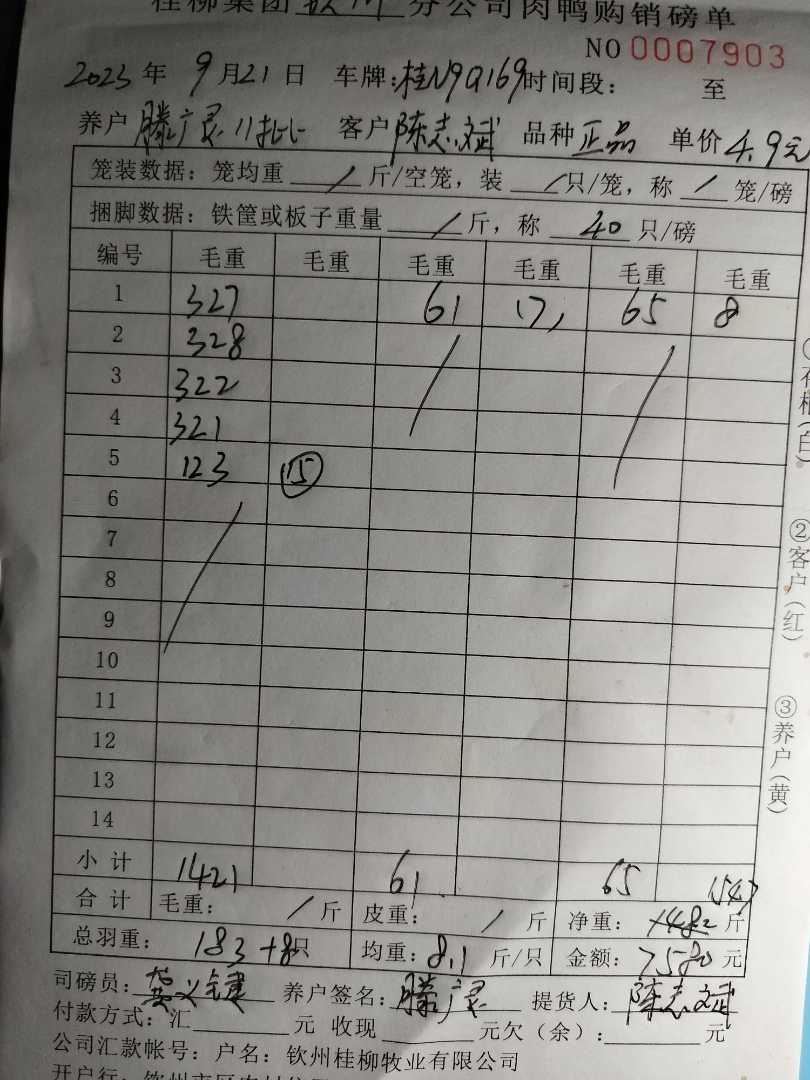 桂柳集团 钦州 分公司肉鸭购销磅单
NO 0007903
2023 年 9 月 21 日 车牌:桂N9Q169 时间段: 至
养户 滕广灵 11批 客户 陈志斌 品种 正品 单价 4.9元
笼装数据: 笼均重 / 斤/空笼, 装 / 只/笼, 称 / 笼/磅
捆脚数据: 铁筐或板子重量 / 斤, 称 40 只/磅
编号 毛重 毛重 毛重 毛重 毛重 毛重
1 327 61 17, 65 8
2 328
3 322
4 321
5 123 15
6
7
8
9
10
11
12
13
14
小计 1421 61 65 1547
合计 毛重: / 斤 皮重: / 斤 净重: 斤
总羽重: 183+8只 均重: 8.1 斤/只 金额: 7580 元
司磅员: 养户签名: 滕广灵 提货人: 陈志斌
付款方式: 汇 元 收现 元欠(余): 元
公司汇款帐号: 户名: 钦州桂柳牧业有限公司
开户行:
(白)
②客户(红)
③养户(黄)